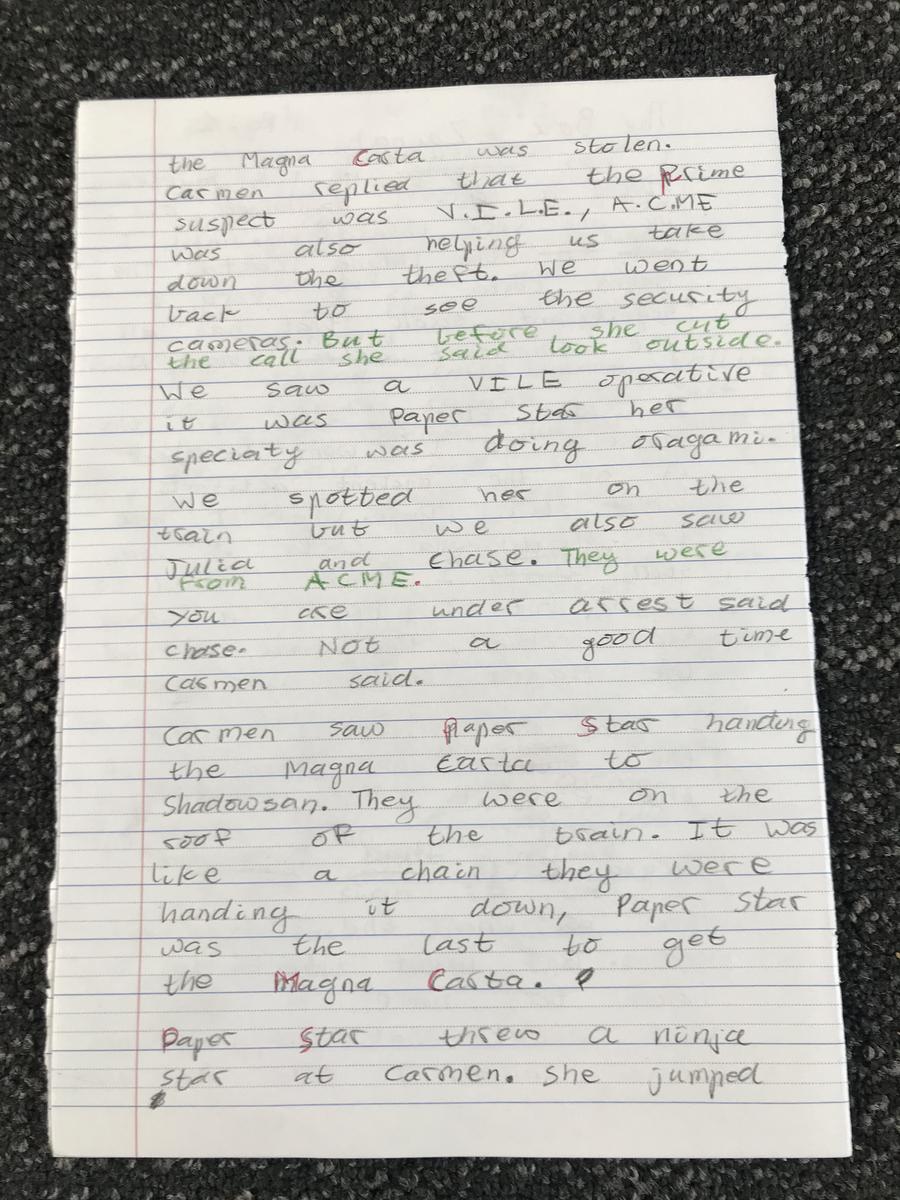 the Magna Carta was stolen.
Carmen replied that the Prime
suspect was V.I.L.E., A.C.ME
was also helping us take
down the theft. We went
back to see the security
cameras. But before she cut
the call she said look outside.
We saw a VILE operative
it was Paper Star her
speciaty was doing oragami.
We spotted her on the
train but we also saw
Julia and Chase. They were
from ACME.
You are under arrest said
Chase. Not a good time
Carmen said.
Carmen saw Paper Star handing
the Magna Carta to
Shadowsan. They were on the
roof of the train. It was
like a chain they were
handing it down, Paper Star
was the last to get
the Magna Carta.
Paper Star threw a ninja
star at Carmen. She jumped